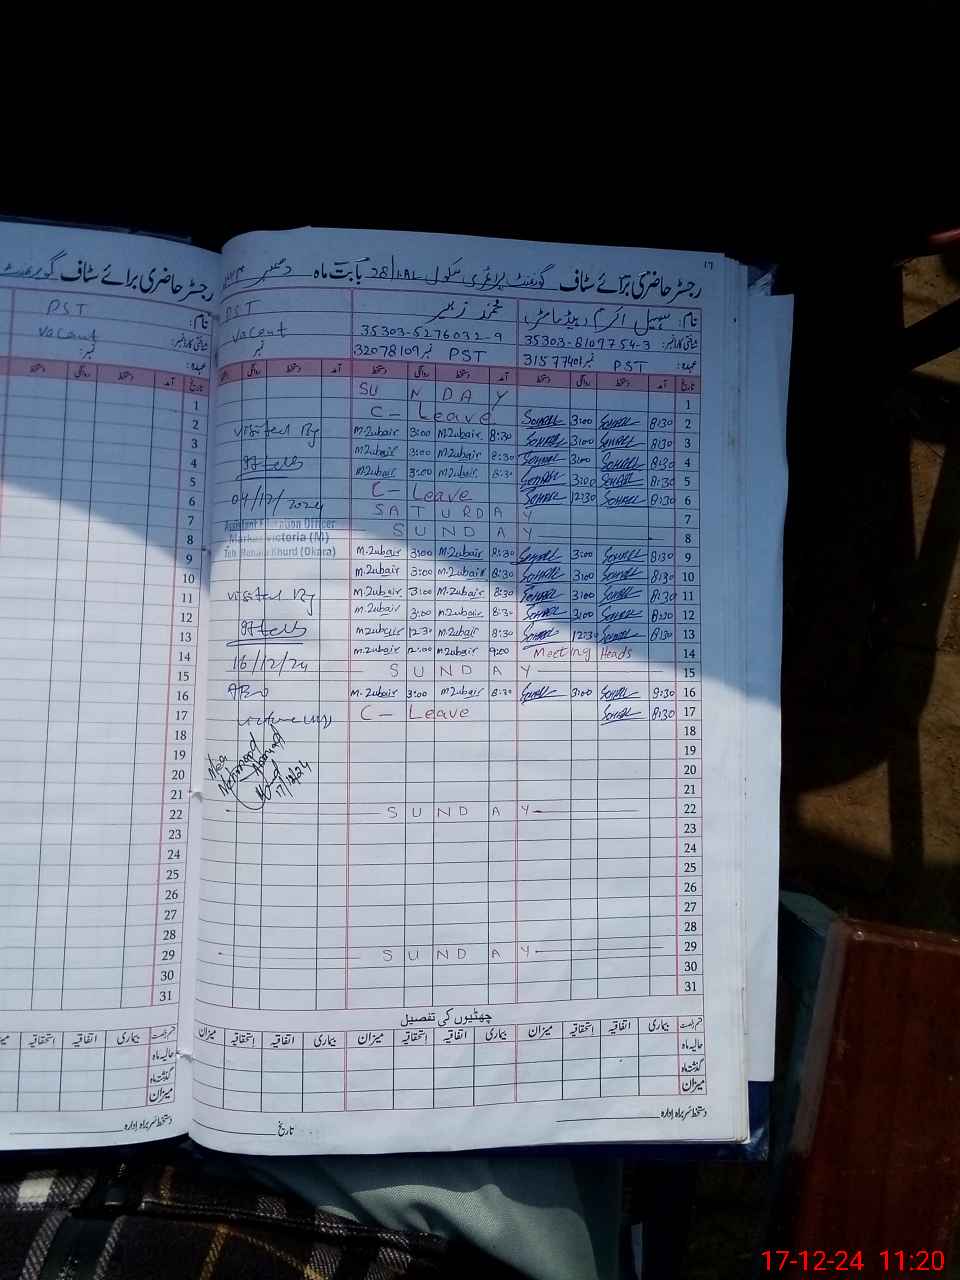 رجسٹر حاضری برائے سٹاف گورنمنٹ
نام: PST
شناختی کارڈ نمبر: Vacant
عہدہ: نمبر:
تاریخ آمد دستخط روانگی دستخط
۱۶
رجسٹر حاضری برائے سٹاف گورنمنٹ پرائمری سکول 28/1AL بابت ماہ دسمبر
نام: سہیل اکرم ہیڈ ماسٹر محمد زبیر PST
شناختی کارڈ نمبر: 35303-8109754-3 35303-5276032-9 Vacant
عہدہ: PST نمبر 31577401 PST نمبر 32078109 نمبر
تاریخ آمد دستخط روانگی دستخط آمد دستخط روانگی دستخط آمد دستخط روانگی
SUNDAY 1
C- Leave Sohail 3:00 Sohail 8:30 2
Visited By M.Zubair 3:00 M.Zubair 8:30 Sohail 3:00 Sohail 8:30 3
M.Zubair 3:00 M.Zubair 8:30 Sohail 3:00 Sohail 8:30 4
M.Zubair 3:00 M.Zubair 8:30 Sohail 3:00 Sohail 8:30 5
04/12/2024 C- Leave Sohail 12:30 Sohail 8:30 6
SATURDAY 7
Assistant Education Officer SUNDAY 8
Markaz Victoria (M)
Teh. Renala Khurd (Okara) M.Zubair 3:00 M.Zubair 8:30 Sohail 3:00 Sohail 8:30 9
M.Zubair 3:00 M.Zubair 8:30 Sohail 3:00 Sohail 8:30 10
Visited By M.Zubair 3:00 M.Zubair 8:30 Sohail 3:00 Sohail 8:30 11
M.Zubair 3:00 M.Zubair 8:30 Sohail 3:00 Sohail 8:30 12
M.Zubair 12:30 M.Zubair 8:30 Sohail 12:30 Sohail 8:30 13
16/12/24 M.Zubair 12:00 M.Zubair 9:00 Meeting Heads 14
SUNDAY 15
AEO M.Zubair 3:00 M.Zubair 8:30 Sohail 3:00 Sohail 8:30 16
C- Leave Sohail 8:30 17
18
19
Mohammad 20
17/12/24 21
SUNDAY 22
23
24
25
26
27
28
SUNDAY 29
30
31
چھٹیوں کی تفصیل
قسم رخصت بیماری اتفاقیہ استحقاقیہ میزان بیماری اتفاقیہ استحقاقیہ میزان بیماری اتفاقیہ استحقاقیہ میزان
حالیہ ماہ
گذشتہ ماہ
میزان
دستخط سربراہ ادارہ تاریخ
1
2
3
4
5
6
7
8
9
10
11
12
13
14
15
16
17
18
19
20
21
22
23
24
25
26
27
28
29
30
31
قسم رخصت بیماری اتفاقیہ استحقاقیہ
حالیہ ماہ
گذشتہ ماہ
میزان
دستخط سربراہ ادارہ
17-12-24 11:20